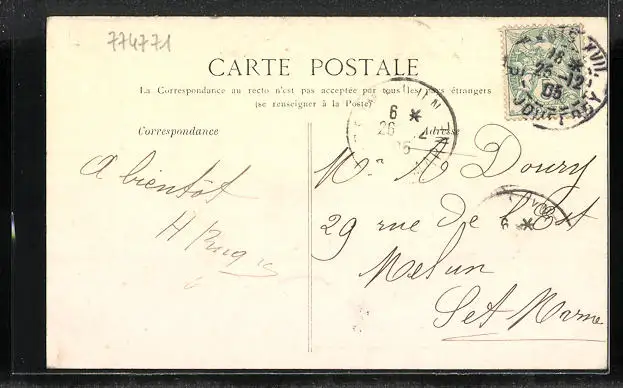 774771
CARTE POSTALE
La Correspondance au recto n'est pas acceptée par tous les pays étrangers
(se renseigner à la Poste)
Correspondance
Adresse
A bientôt
H
Mr A Doury
29 rue de l'Est
Melun
Set Marne
XVII
18 *
25-12
05
JOUFFROY
6 *
26
6 *